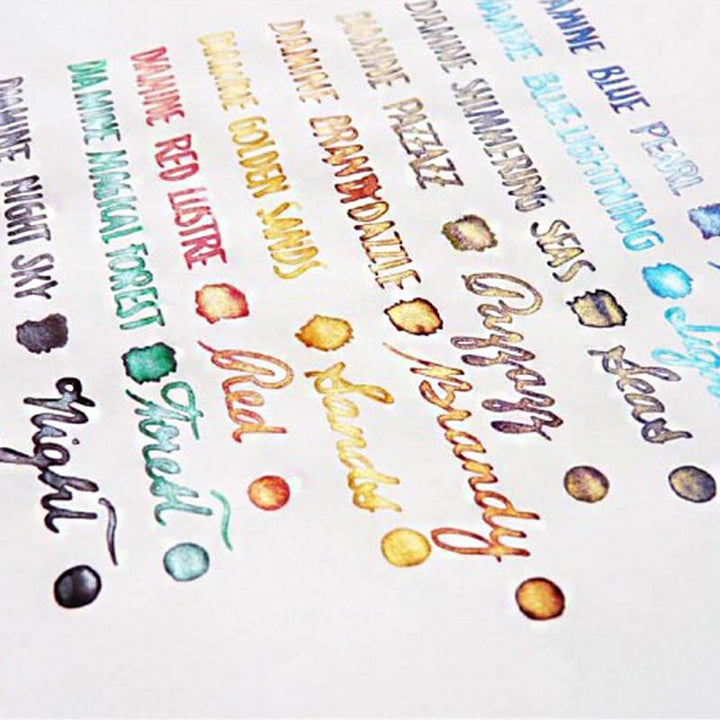 DIAMINE NIGHT SKY
Night
DIAMINE MAGICAL FOREST
Forest
DIAMINE RED LUSTRE
Red
DIAMINE GOLDEN SANDS
Sands
DIAMINE BRANDYDAZZLE
Brandy
DIAMINE PAZZAZZ
Pazzazz
DIAMINE SHIMMERING SEAS
Seas
DIAMINE BLUE LIGHTNING
Ligh
AMINE BLUE PEARL